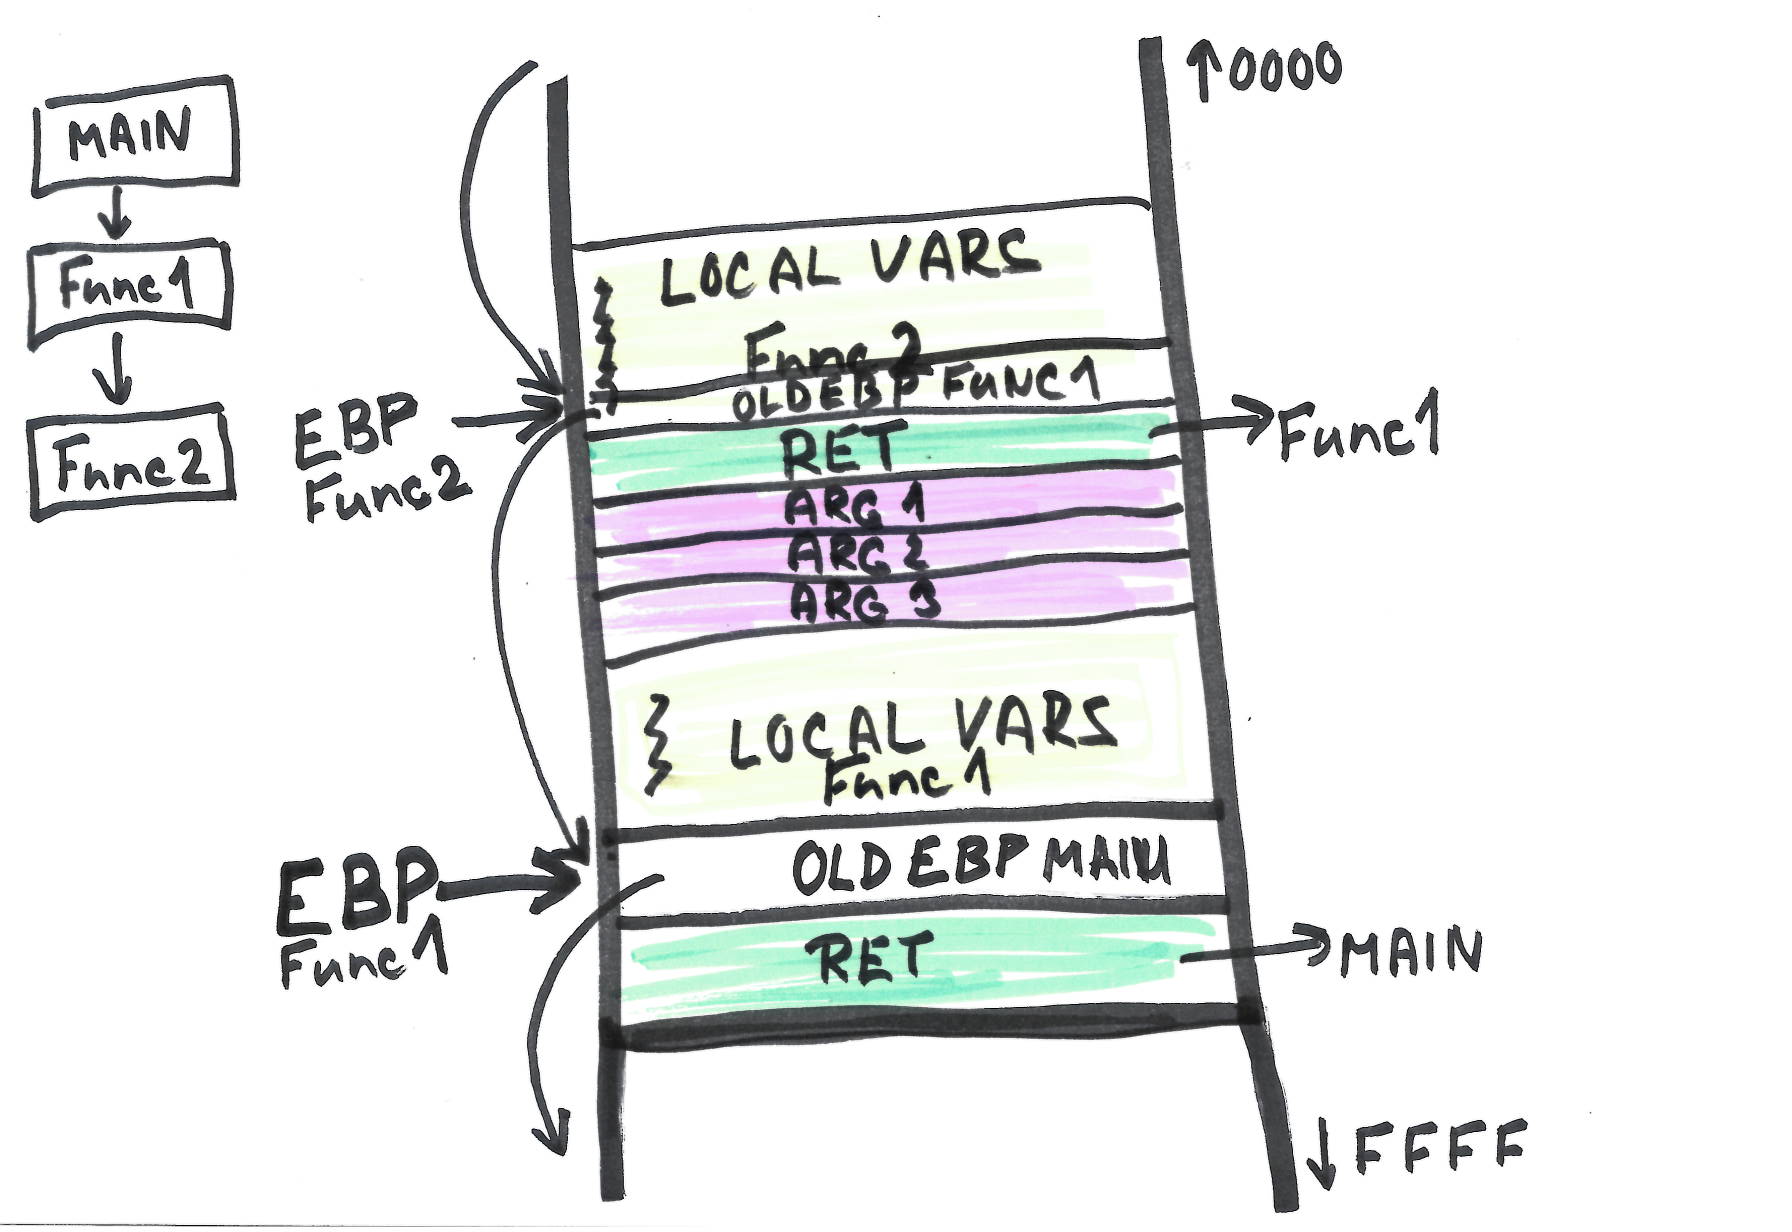 MAIN
Func1
Func2
↑0000
LOCAL VARS
Func2
OLDEBP FUNC1
EBP
Func2
RET
Func1
ARG 1
ARG 2
ARG 3
LOCAL VARS
Func1
EBP
Func1
OLD EBP MAIN
RET
MAIN
↓FFFF